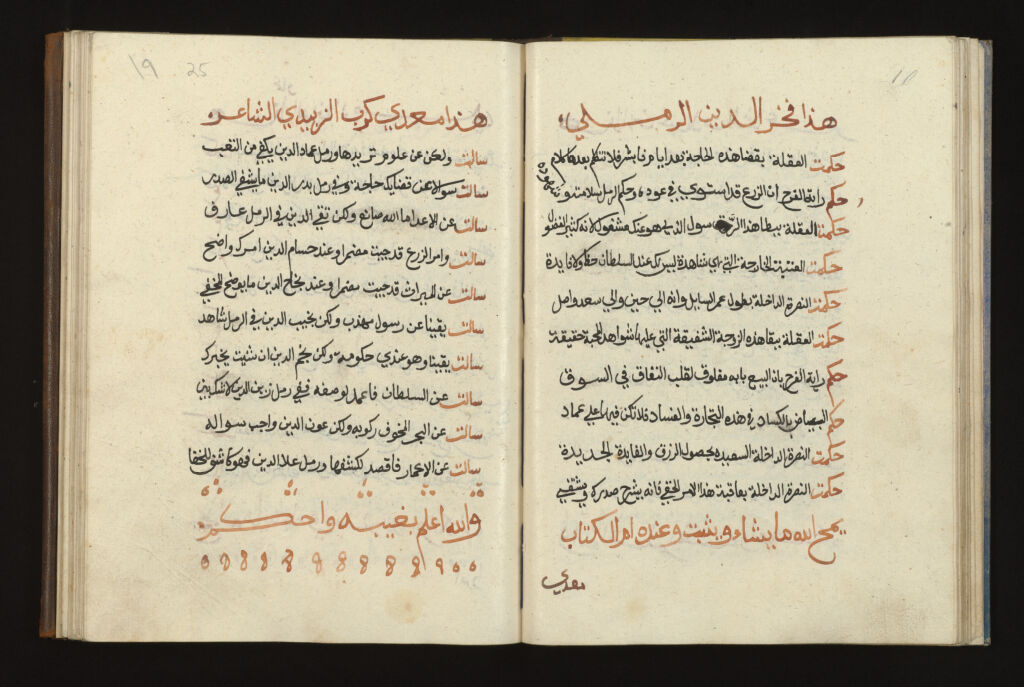 هذا فخر الدين الرملي
حكمت العقلة بقضا هذه الحاجة بعد ايام فابشر فلا تتكلم بعدها كلام
حكم راية الفرح ان الزرع قد استوي في عوده وحكم الرمل سلامته وشهوده
حكمت العقلة ببطا هذا الرسول الذي هو عنك مشغول لانه كثير الفضول
حكمت العتبة الخارجة التي هي شاهدة ليس لك عند السلطان حكم ولا فايدة
حكمت النصرة الداخلة بطول عمر السايل وانه الي حين والي سعد واصل
حكمت العقلة ببقا هذه الزوجة الشفيقة التي عليها شواهد المحبة حقيقة
حكم راية الفرح بان البيع بابه مفلوق لقلب النفاق في السوق
حكم البياض بالكساد في هذه التجارة والفساد فلا تكن فيها علي عماد
حكمت النصرة الداخلة السعيدة بحصول الرزق والفايدة الجديدة
حكمت النصرة الداخلة بعاقبة هذا الامر الخفي فانه ينشرح صدرك ويشتفي
يمح الله ما يشاء ويثبت وعنده ام الكتاب
معدي
19 25
هذا معدي كرب الزبيدي الشاعر
سالت ولكن عن علوم تريدها ورمل عماد الدين يكفي من التعب
سالت سوالا عن قضايك حاجة وفي رمل بدر الدين ما يشفي الصدر
سالت عن الاعدا ما الله صانع ولكن تقي الدين في الرمل عارف
سالت وامر الزرع قد جيت مضمرا وعند حسام الدين امرك واضح
سالت عن الميراث قد جيت مضمرا وعند نجاح الدين ما يوضح الخفي
سالت يقينا عن رسول مهذب ولكن نجيب الدين في الرمل شاهد
سالت يقينا وهو عندي حكومة ولكن نجم الدين ان شيت يخبرك
سالت عن السلطان فاعمد لوصفه ففي رمل زين الدين لا شك يبين
سالت عن البحر المخوف ركوبه ولكن عون الدين واجب سواله
سالت عن الاعمار فاقصد لكشفها ورمل علا الدين فهو كاشف الخفا
والله اعلم بغيبه واحكم